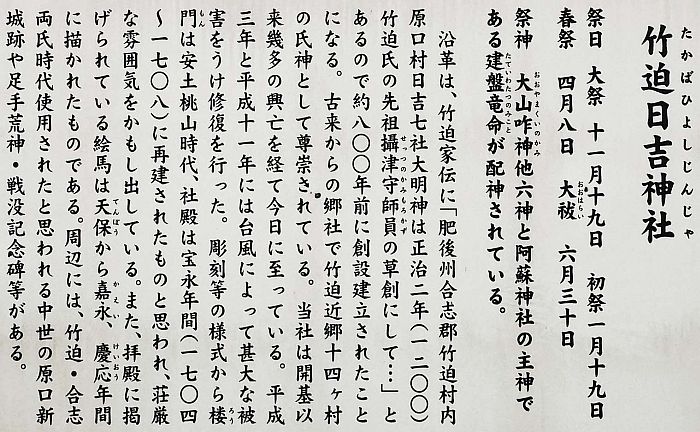 竹迫日吉神社
たかばひよしじんじゃ
祭日 大祭 十一月十九日 初祭一月十九日
春祭 四月八日 大祓 六月三十日
おおはらい
祭神 大山咋神他六神と阿蘇神社の主神で
おおやまくいのかみ
ある建盤竜命が配神されている。
たていわたつのみこと
沿革は、竹迫家伝に「肥後州合志郡竹迫村内
原口村日吉七社大明神は正治二年(一二〇〇)
竹迫氏の先祖攝津守師員の草創にして…」と
せっつのかみもろかず
あるので約八〇〇年前に創設建立されたこと
になる。古来からの郷社で竹迫近郷十四ヶ村
の氏神として尊崇されている。当社は開基以
来幾多の興亡を経て今日に至っている。平成
三年と平成十一年には台風によって甚大な被
害をうけ修復を行った。彫刻等の様式から楼
ろう
門は安土桃山時代、社殿は宝永年間(一七〇四
もん
〜一七〇八)に再建されたものと思われ、荘厳
な雰囲気をかもし出している。また、拝殿に掲
げられている絵馬は天保から嘉永、慶応年間
てんぽう かえい けいおう
に描かれたものである。周辺には、竹迫・合志
両氏時代使用されたと思われる中世の原口新
城跡や足手荒神・戦没記念碑等がある。